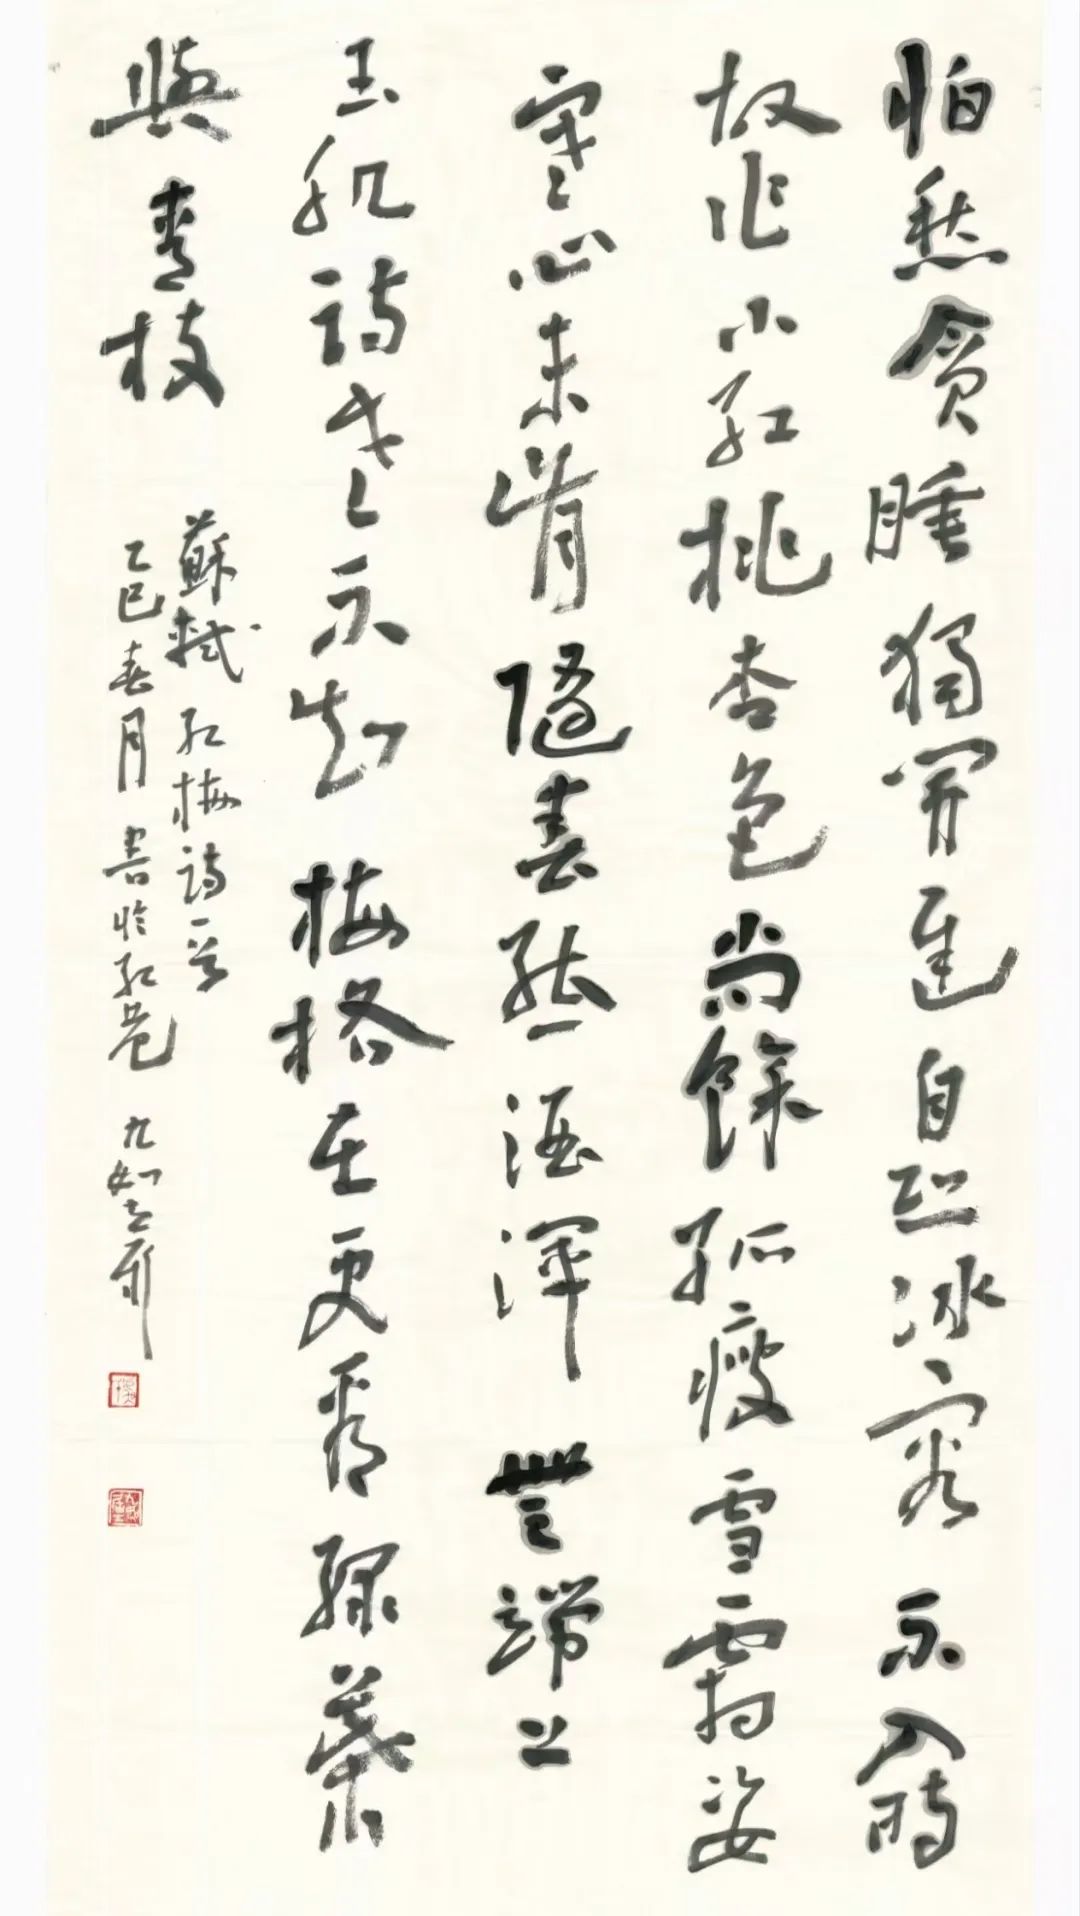 怕愁貪睡獨開遲自恐冰容不入時
故作小紅桃杏色尚餘孤瘦雪霜姿
寒心未肯隨春態酒渾無端上
玉肌詩老不知梅格在更看綠葉
與青枝
蘇軾紅梅詩一首
乙巳春月書於紅 九如